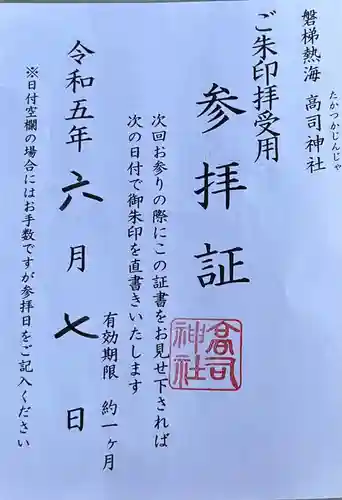 磐梯熱海 高司神社
たかつかじんじゃ
ご朱印拝受用
参拝証
次回お参りの際にこの証書をお見せ下されば
次の日付で御朱印を直書きいたします
有効期限 約一ヶ月
令和五年 六月 七日
※日付空欄の場合にはお手数ですが参拝日をご記入ください
高司神社